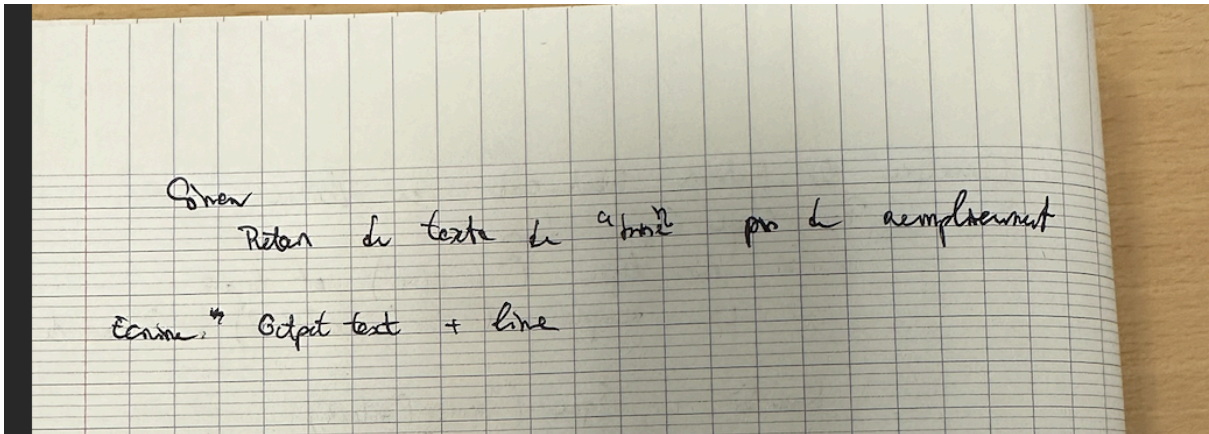 Sinon
Retour du texte de pas de remplissement
Ecrire " Output text + line